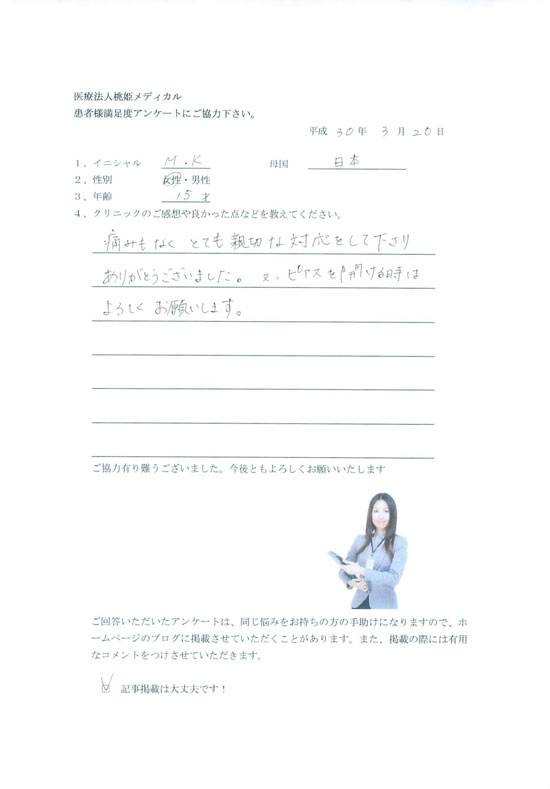 医療法人桃姫メディカル
患者様満足度アンケートにご協力下さい。
平成 30 年 3 月 20 日
1、イニシャル M・K 母国 日本
2、性別 女性・男性
3、年齢 15才
4、クリニックのご感想や良かった点などを教えてください。
痛みもなく とても親切な対応をして下さり
ありがとうございました。 又、ピアスを開ける時は
よろしく お願いします。
ご協力有り難うございました。今後ともよろしくお願いいたします
ご回答いただいたアンケートは、同じ悩みをお持ちの方の手助けになりますので、ホ
ームページのブログに掲載させていただくことがあります。また、掲載の際には有用
なコメントをつけさせていただきます。
☑ 記事掲載は大丈夫です！